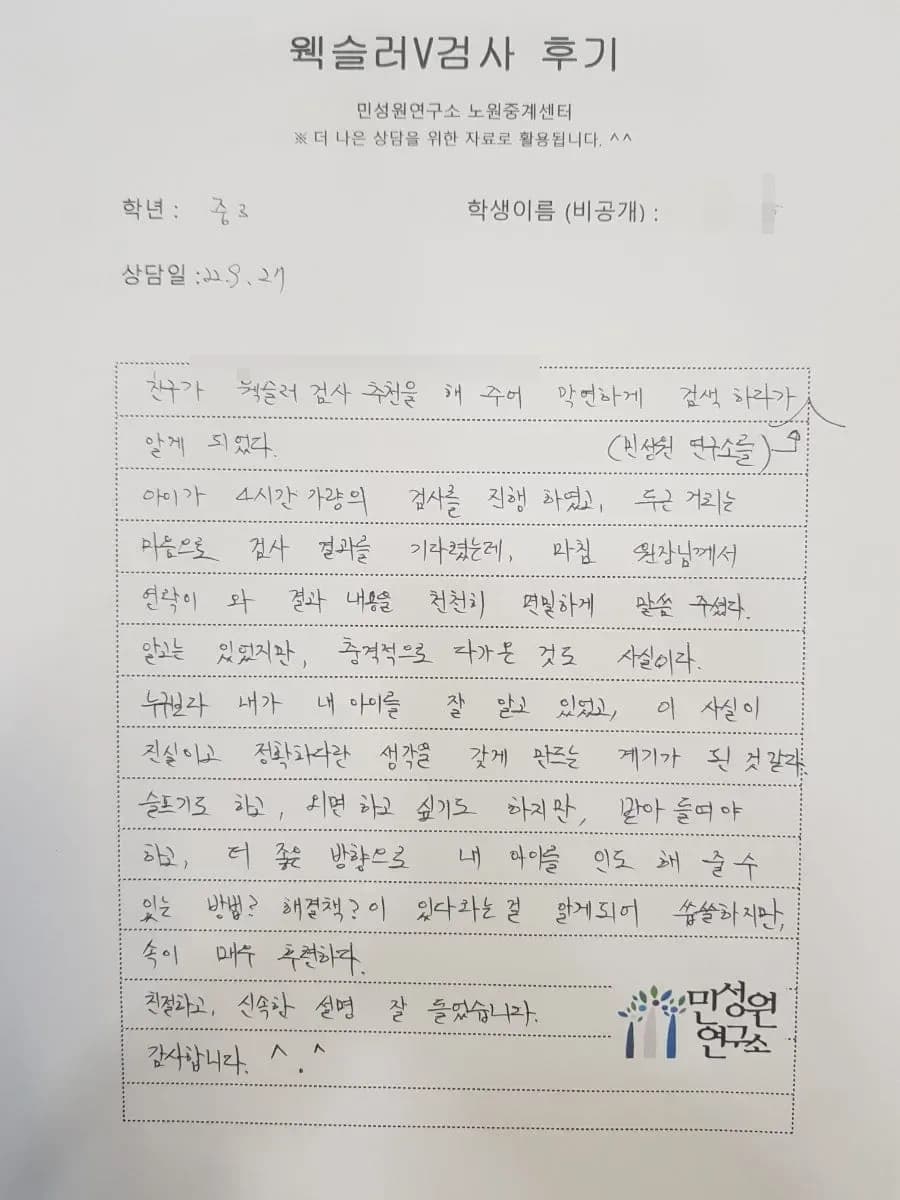 웩슬러V검사 후기
민성원연구소 노원중계센터
※ 더 나은 상담을 위한 자료로 활용됩니다. ^^
학년 : 중3
학생이름 (비공개) :
상담일 : 22.9.27
친구가 웩슬러 검사 추천을 해 주어 막연하게 검색 하라가
알게 되었다. (민성원 연구소를)
아이가 4시간 가량의 검사를 진행 하였고, 두근 거리는
마음으로 검사 결과를 기다렸는데, 마침 원장님께서
연락이 와 결과 내용을 천천히 면밀하게 말씀 주셨다.
알고는 있었지만, 충격적으로 다가온 것도 사실이다.
누구보다 내가 내 아이를 잘 알고 있었고, 이 사실이
진실이고 정확하다란 생각을 갖게 만드는 계기가 된 것 같다.
슬프기도 하고, 외면 하고 싶기도 하지만, 받아 들여야
하고, 더 좋은 방향으로 내 아이를 인도 해 줄 수
있는 방법? 해결책? 이 있다라는 걸 알게되어 씁쓸하지만,
속이 매우 후련하다.
친절하고, 신속한 설명 잘 들었습니다.
감사합니다. ^.^
민성원
연구소